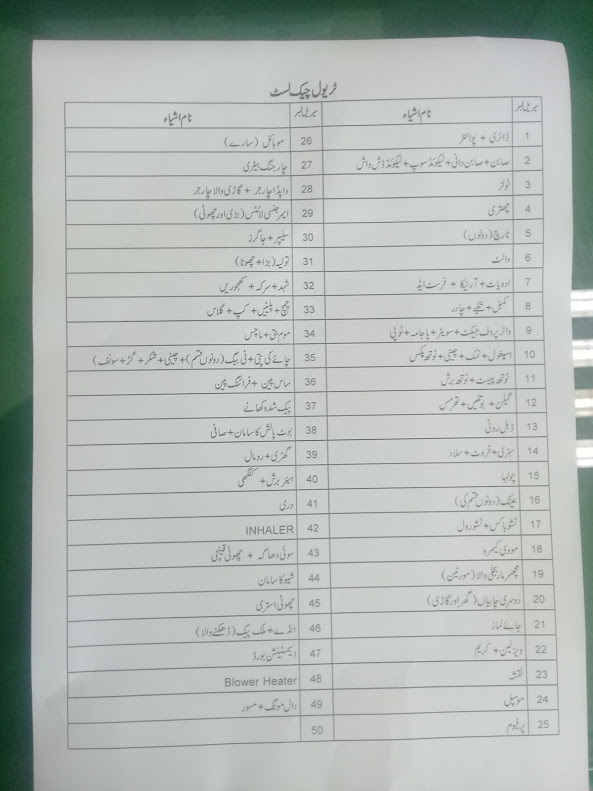 ٹریول چیک لسٹ
سیریل نمبر نام اشیاء
1 ڈائری + پوائنٹر
2 صابن+صابن دانی+لیکوئڈ سوپ+لیکوئڈ ڈش واش
3 ٹولز
4 چھتری
5 ٹارچ(دونوں)
6 والٹ
7 ادویات+آرنیکا + فرسٹ ایڈ
8 کمبل + تکیے + چادر
9 واٹر پروف جیکٹ+سویٹر+پاجامہ+ٹوپی
10 اسپغول+نمک+چینی+ٹوتھ پکس
11 ٹوتھ پیسٹ+ٹوتھ برش
12 گیلن + بوتلیں+تھرمس
13 ڈبل روٹی
14 سبزی+فروٹ+سلاد
15 چولہا
16 عینک(دونوں قسم کی)
17 ٹشو باکس+ٹشو رول
18 مووی کیمرہ
19 مچھر مار بجلی والا(مورٹین)
20 دوسری چابیاں(گھر اور گاڑی)
21 جائے نماز
22 ویزلین+ کریم
23 نقشہ
24 موسپل
25 پرفیوم
سیریل نمبر نام اشیاء
26 موبائل (سارے)
27 چارجنگ بیٹری
28 واپڈا چارجر + گاڑی والا چارجر
29 ایمرجنسی لائٹس(بڑی اور چھوٹی)
30 سلیپر+جاگرز
31 تولیہ(بڑا+چھوٹا)
32 شہد+سرکہ + کھجوریں
33 چمچ+پلیٹیں+ کپ + گلاس
34 موم بتی+ماچس
35 چائے کی پتی+ٹی بیگ(دونوں قسم)+چینی+شکر+گڑ+سونف)
36 ساس پین +فرائنگ پین
37 پیک شدہ کھانے
38 بوٹ پالش کا سامان+صافی
39 گھڑی+رومال
40 ہیئر برش+ کنگھی
41 دری
42 INHALER
43 سوئی دھاگہ + چھوٹی قینچی
44 شیو کا سامان
45 چھوٹی استری
46 انڈے+ملک پیک(ڈھکنے والا)
47 ایکسٹینشن بورڈ
48 Blower Heater
49 دال مونگ+مسور
50